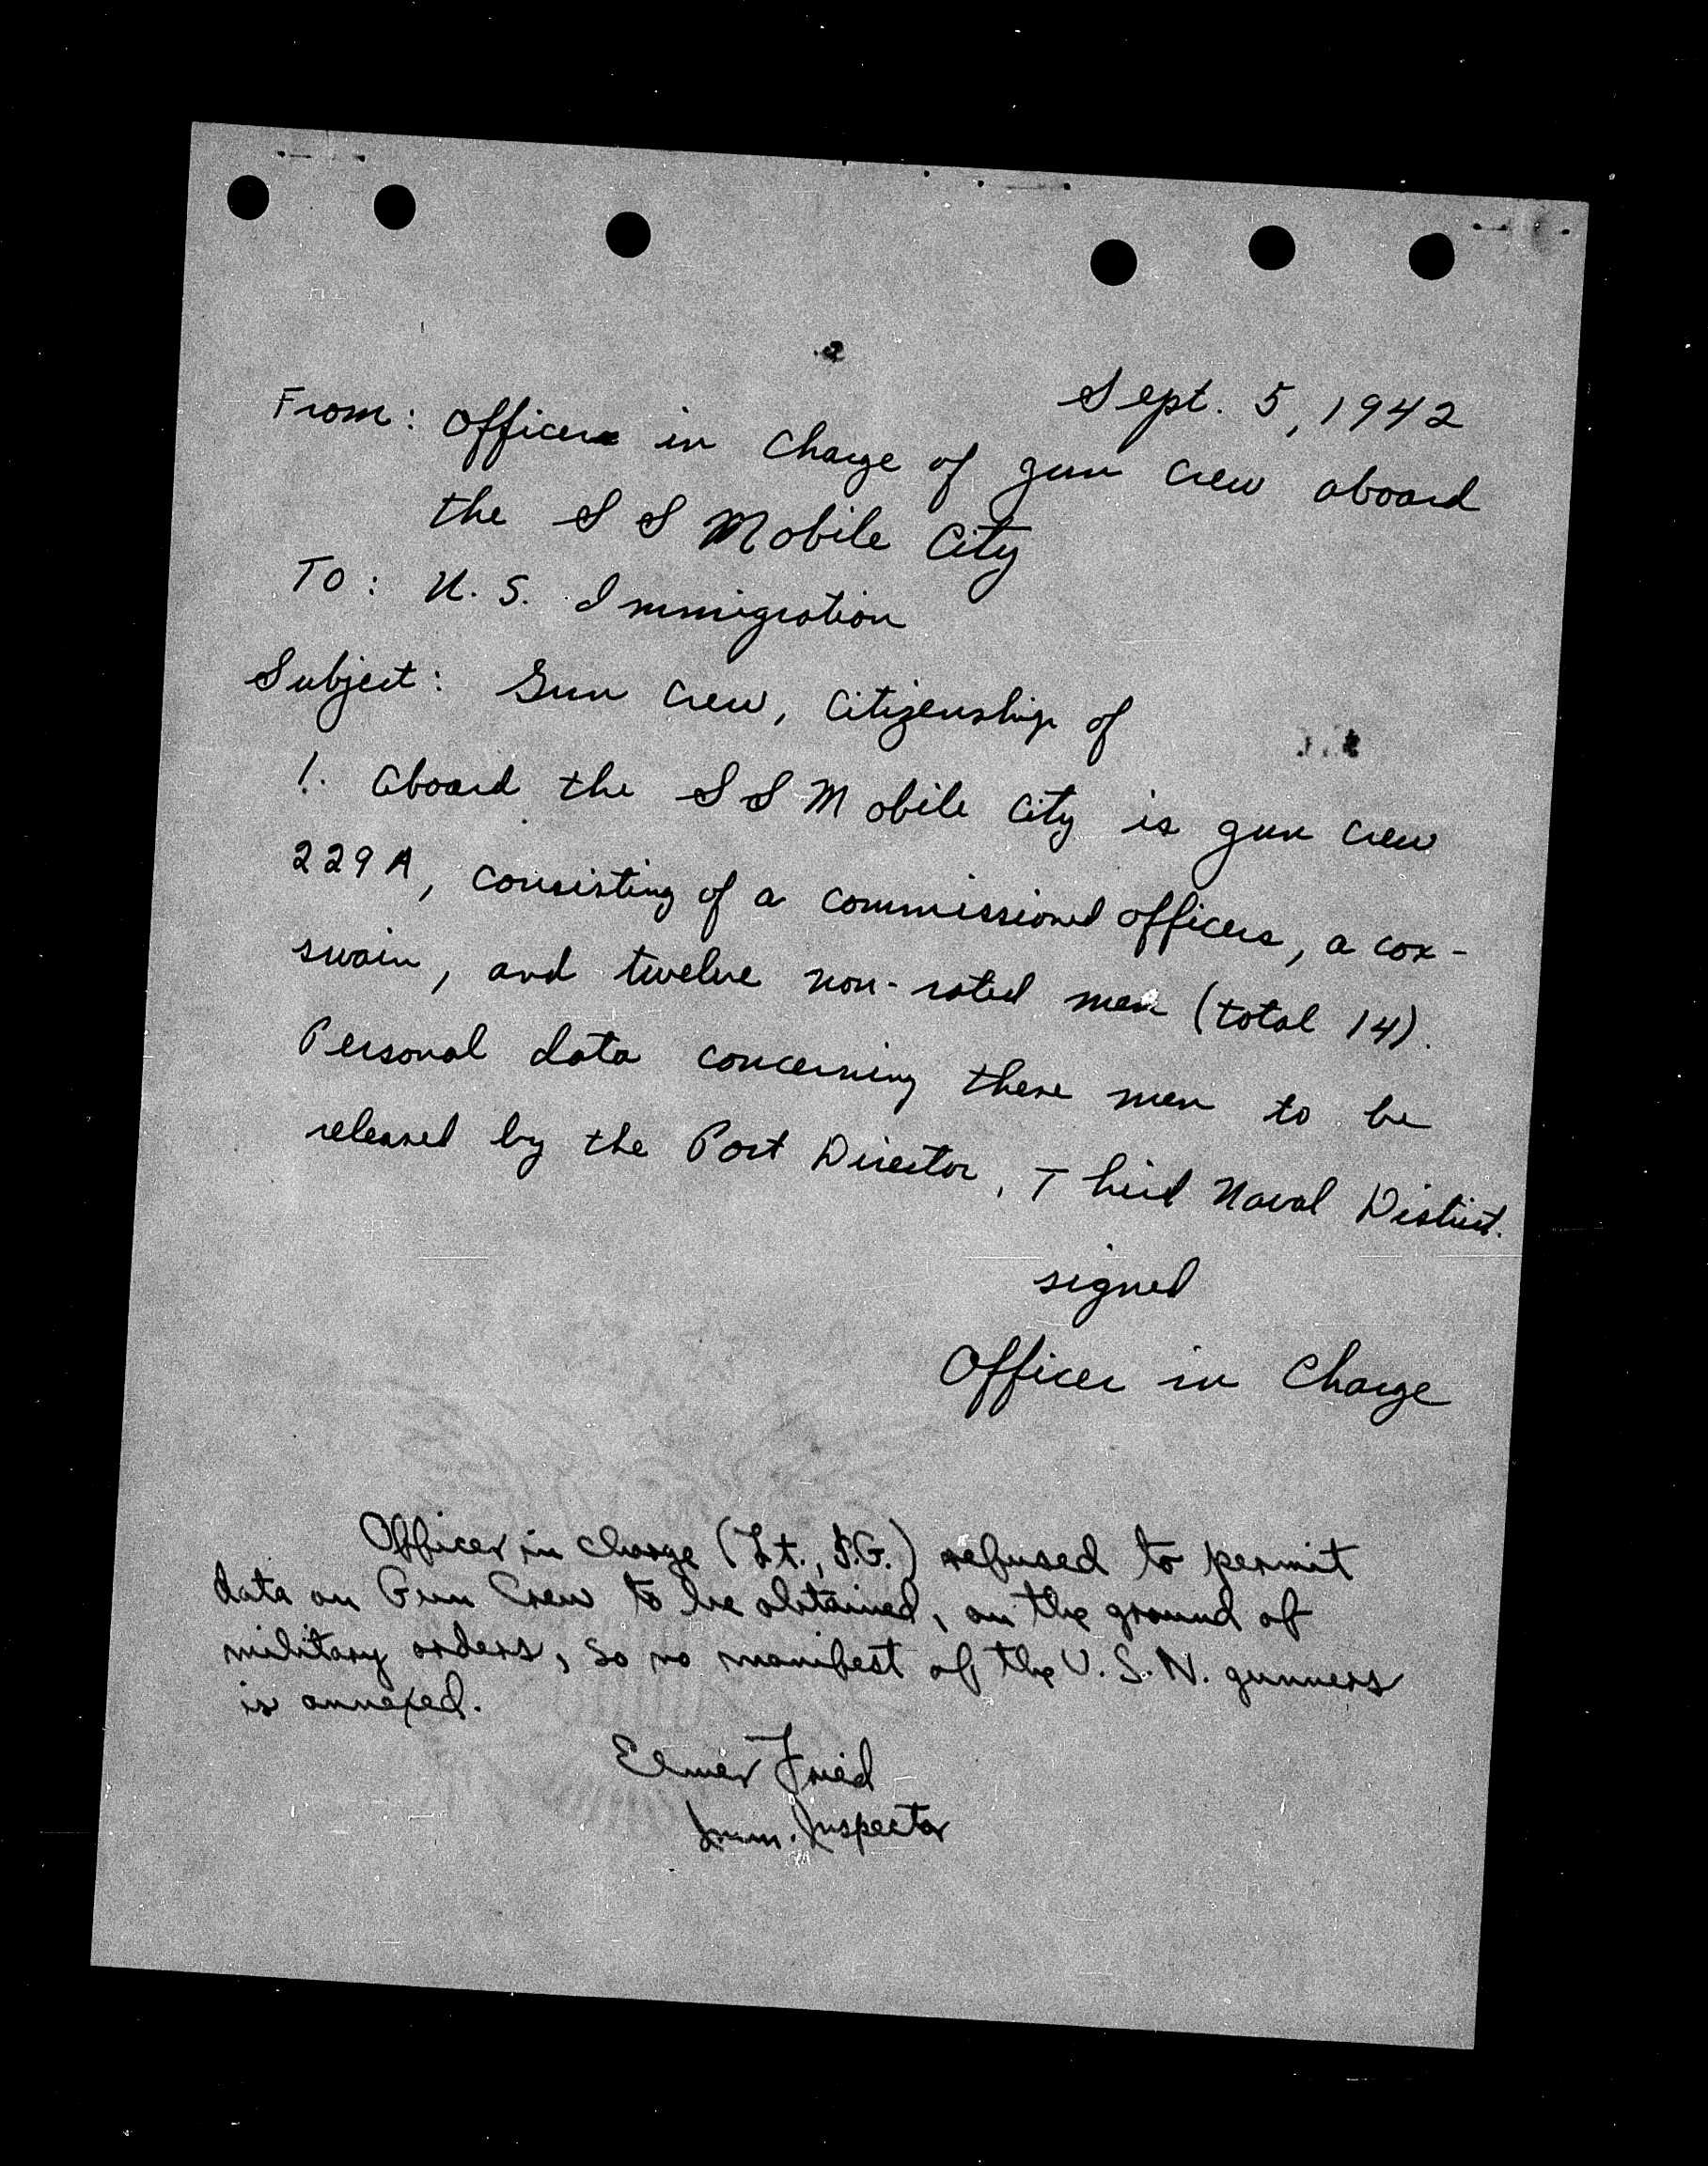 Sept. 5, 1942
From: Officer in charge of gun crew aboard
the SS Mobile City
To: U.S. Immigration
Subject: Gun Crew, Citizenship of
1. Aboard the SS Mobile City is gun crew
229A, consisting of a commissioned officers, a cox-
swain, and twelve non-rated men (total 14).
Personal data concerning these men to be
released by the Port Director, Third Naval District.
signed
Officer in Charge
Officer in charge (Lt., J.G.) refused to permit
data on Gun Crew to be obtained, on the ground of
military orders, so no manifest of the U.S.N. gunners
is annexed.
Elmer Fried
Imm. Inspector